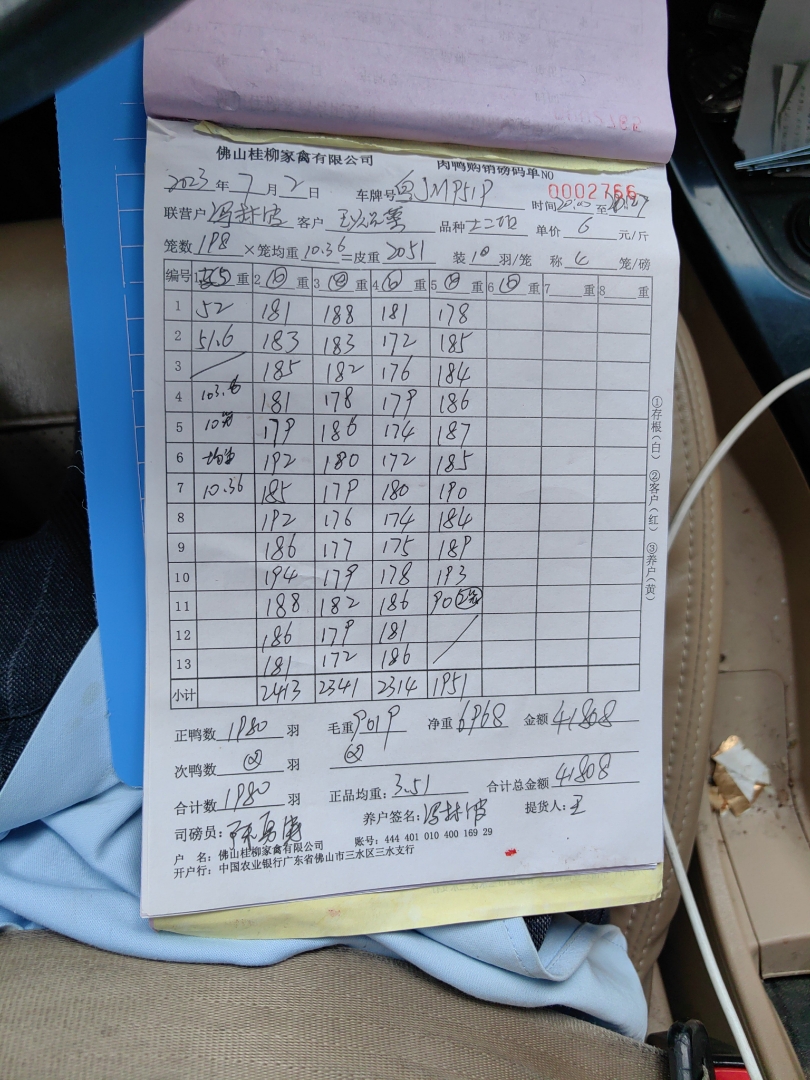 佛山桂柳家禽有限公司 肉鸭购销磅码单 NO 0002766
2023年 7月 2日 车牌号 粤JMP51P 时间 20:00 至
联营户 客户 品种 单价 6 元/斤
笼数 198 ×笼均重 10.36 =皮重 2051 装 10 羽/笼 称 4 笼/磅
编号 重 2 重 3 重 4 重 5 重 6 重 7 重 8 重
1 52 181 188 181 178
2 51.6 183 183 172 185
3 185 182 176 184
4 103.6 181 178 179 186
5 10 179 186 174 187
6 均重 192 180 172 185
7 10.36 185 179 180 190
8 192 176 174 184
9 186 177 175 189
10 194 179 178 193
11 188 182 186 90
12 186 179 181
13 181 172 186
小计 2413 2341 2314 1951
正鸭数 1980 羽 毛重 9019 净重 6968 金额 41808
次鸭数 羽
合计数 1980 羽 正品均重: 3.51 合计总金额 41808
司磅员: 养户签名: 提货人: 王
户 名: 佛山桂柳家禽有限公司 账号: 444 401 010 400 169 29
开户行: 中国农业银行广东省佛山市三水区三水支行
①存根(白) ②客户(红) ③养户(黄)